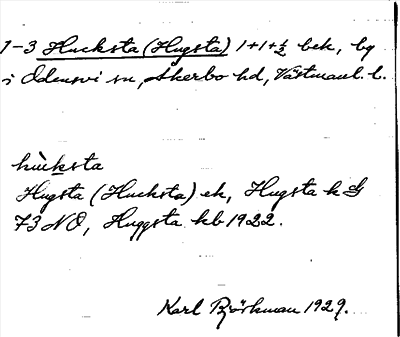 1-3 Hucksta (Hugsta) 1+1+½ bek, by
i Odensvi sn, Åkerbo hd, Västmanl. l.
hùcksta
Hugsta (Hucksta) ek, Hugsta k G
73 NO, Huggsta kb 1922.
Karl Björkman 1929.